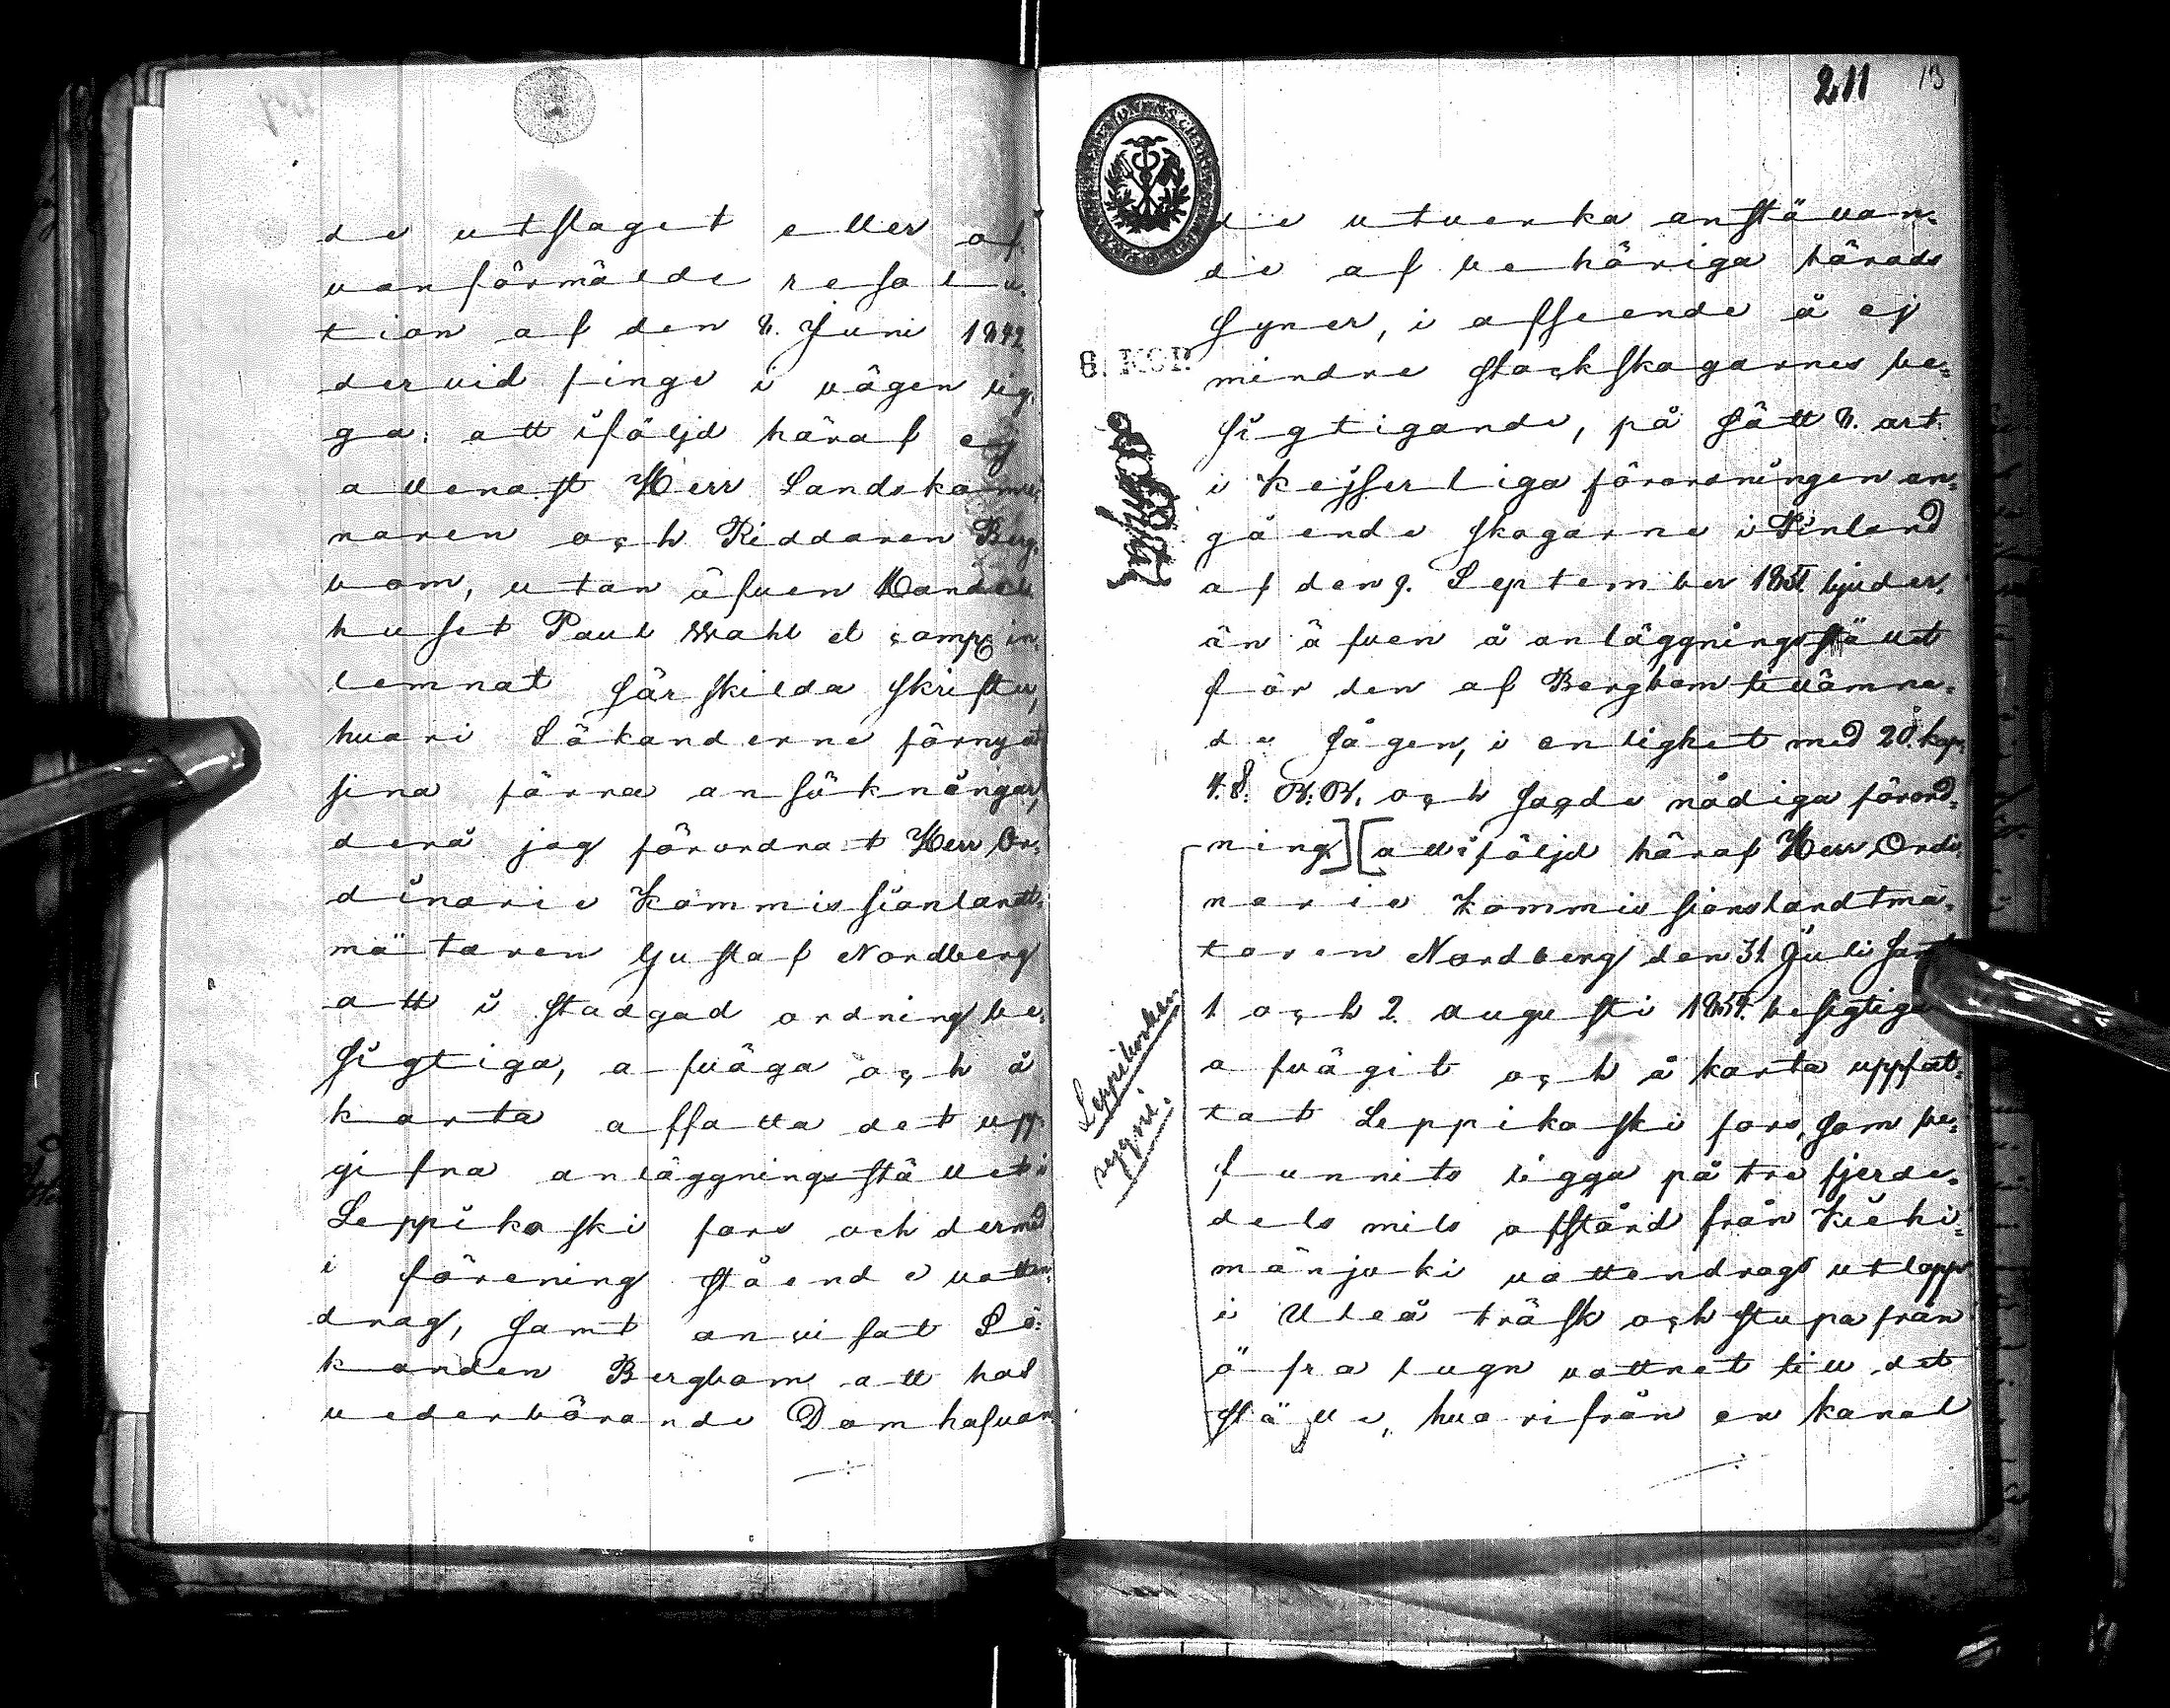 de utslaget eller of-
vanförmälde resolu-
tion af den 8. Juni 1842
dervid finge i vägen lig-
ga: att ifäljd häraf ej
allenast Herr Landskamre-
raren och Riddaren Berg-
bom, utan äfven Handels
huset Paul Wahl et comp: in-
lemnat särskilda skrifter,
hvari Sökanderne förnyat
sina förra ansökningar,
derå jag förordnat Herr Or-
dinarie Kommissionlandt-
mätaren Gustaf Nordberg
att i stadgad ordning be-
sigtiga, afväga och å
karta affatta det upp-
gifna anläggningsstället i
Leppikoski fors och dermed
i förening stående vatten-
drag, samt anvisat Sö-
kanden Bergbom att hos
vederbörande Domhafvan-
211 13
8. KOP.
de utverka anställan-
de af behöriga härads
syner, i afseende å ej
mindre stockskogarnes be-
sigtigande, på sätt 8. art.
i Kejserliga förordningen an-
gående skogarne i Finland
af den 9. September 1851. bjuder,
än äfven å anläggningsstället
för den af Bergbom tillämna-
de sågen, i enlighet med 20. kap.
4. §. B.B. och sagde nådiga förord-
ning] [att i följd häraf Herr Ordi-
narie Kommissionslandtmä-
taren Nordberg den 31 Juli samt
1 och 2. augusti 1854. besigtigat
afvägit och å karta uppfat-
tat Leppikoski fors, som be-
funnits ligga på tre fjerde-
dels mils afstånd från Kiehi-
mänjoki vattendrags utlopp
i Uleå träsk och stupa från
öfra lugnvattnet till det
ställe, hvarifrån en kanal
Leppikosken
syyni.